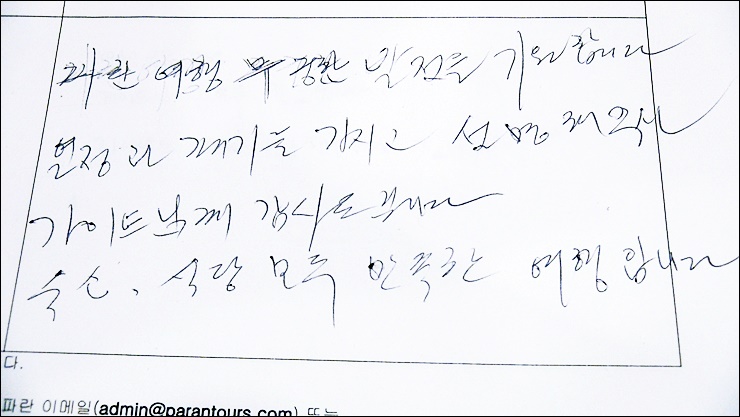 파란 여행 무궁한 발전을 기원합니다
열정과 재미를 가지고 설명해주신
가이드님께 감사드립니다
숙소, 식당 모두 만족한 여행입니다
다.
파란 이메일(admin@parantours.com) 또는